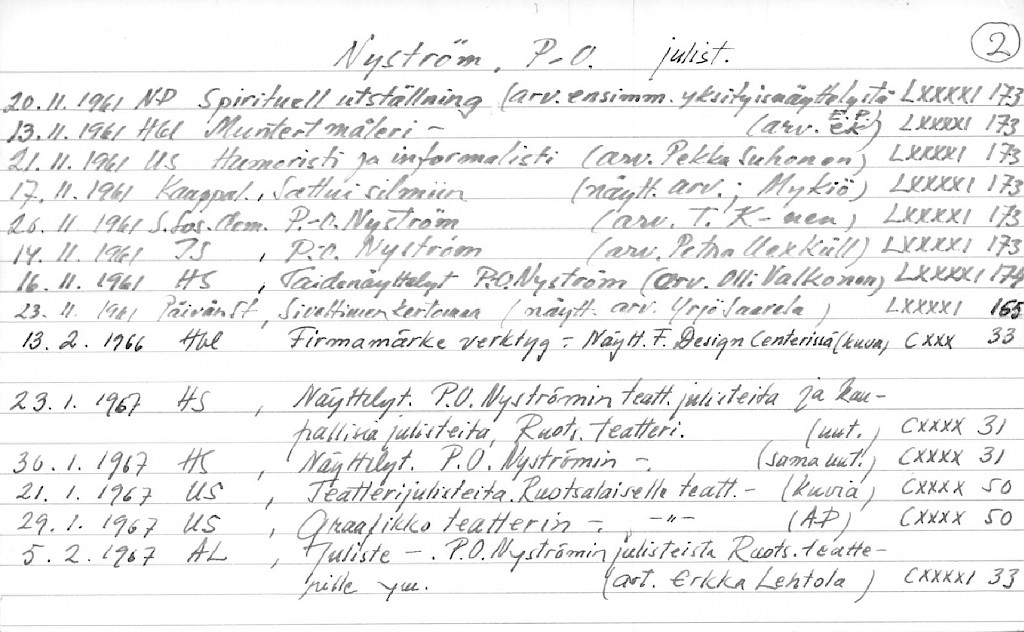 2
Nyström, P-O. julist.
20.11.1961 ND Spirituell utställning (arv. ensimm. yksityisnäyttelystä LXXXXI 173
13.11.1961 Hbl Muntert måleri - (arv. E.P.) LXXXXI 173
21.11.1961 US Humoristi ja informalisti (arv. Pekka Suhonen) LXXXXI 173
17.11.1961 Kauppal., Sattui silmiin (näytt. arv.; Mykiö) LXXXXI 173
26.11.1961 S.Sos.dem. P.-O. Nyström (arv. T. K-nen) LXXXXI 173
14.11.1961 IS, P.O. Nyström (arv. Petra Uexküll) LXXXXI 173
16.11.1961 HS, Taidenäyttelyt P.O. Nyström (arv. Olli Valkonen) LXXXXI 174
23.11.1961 PäivänS, Siveltimen kertomaa (näytt. arv. Yrjö Saarela) LXXXXI 165
13.2.1966 Hbl Firmamärke verktyg - Näytt. F. Design Centerissä (kuva) CXXX 33
23.1.1967 HS, Näyttelyt. P.O. Nyströmin teatt. julisteita ja kau-
pallisia julisteita, Ruots. teatteri. (uut.) CXXXX 31
30.1.1967 HS, Näyttelyt. P.O. Nyströmin -. (sama uut.) CXXXX 31
21.1.1967 US, Teatterijulisteita Ruotsalaiselle teatt. - (kuvia) CXXXX 50
29.1.1967 US, Graafikko teatterin -. -"- (AP) CXXXX 50
5.2.1967 AL, Juliste -. P.O. Nyströmin julisteista Ruots. teatte-
rille ym. (art. Erkka Lehtola) CXXXXI 33